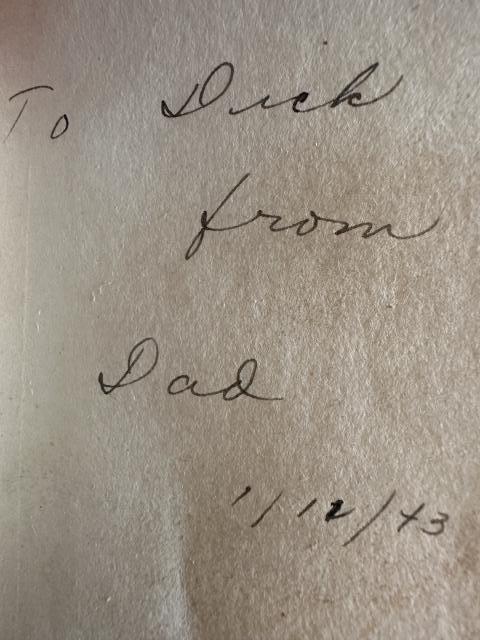 To Dick
from
Dad
1/12/43